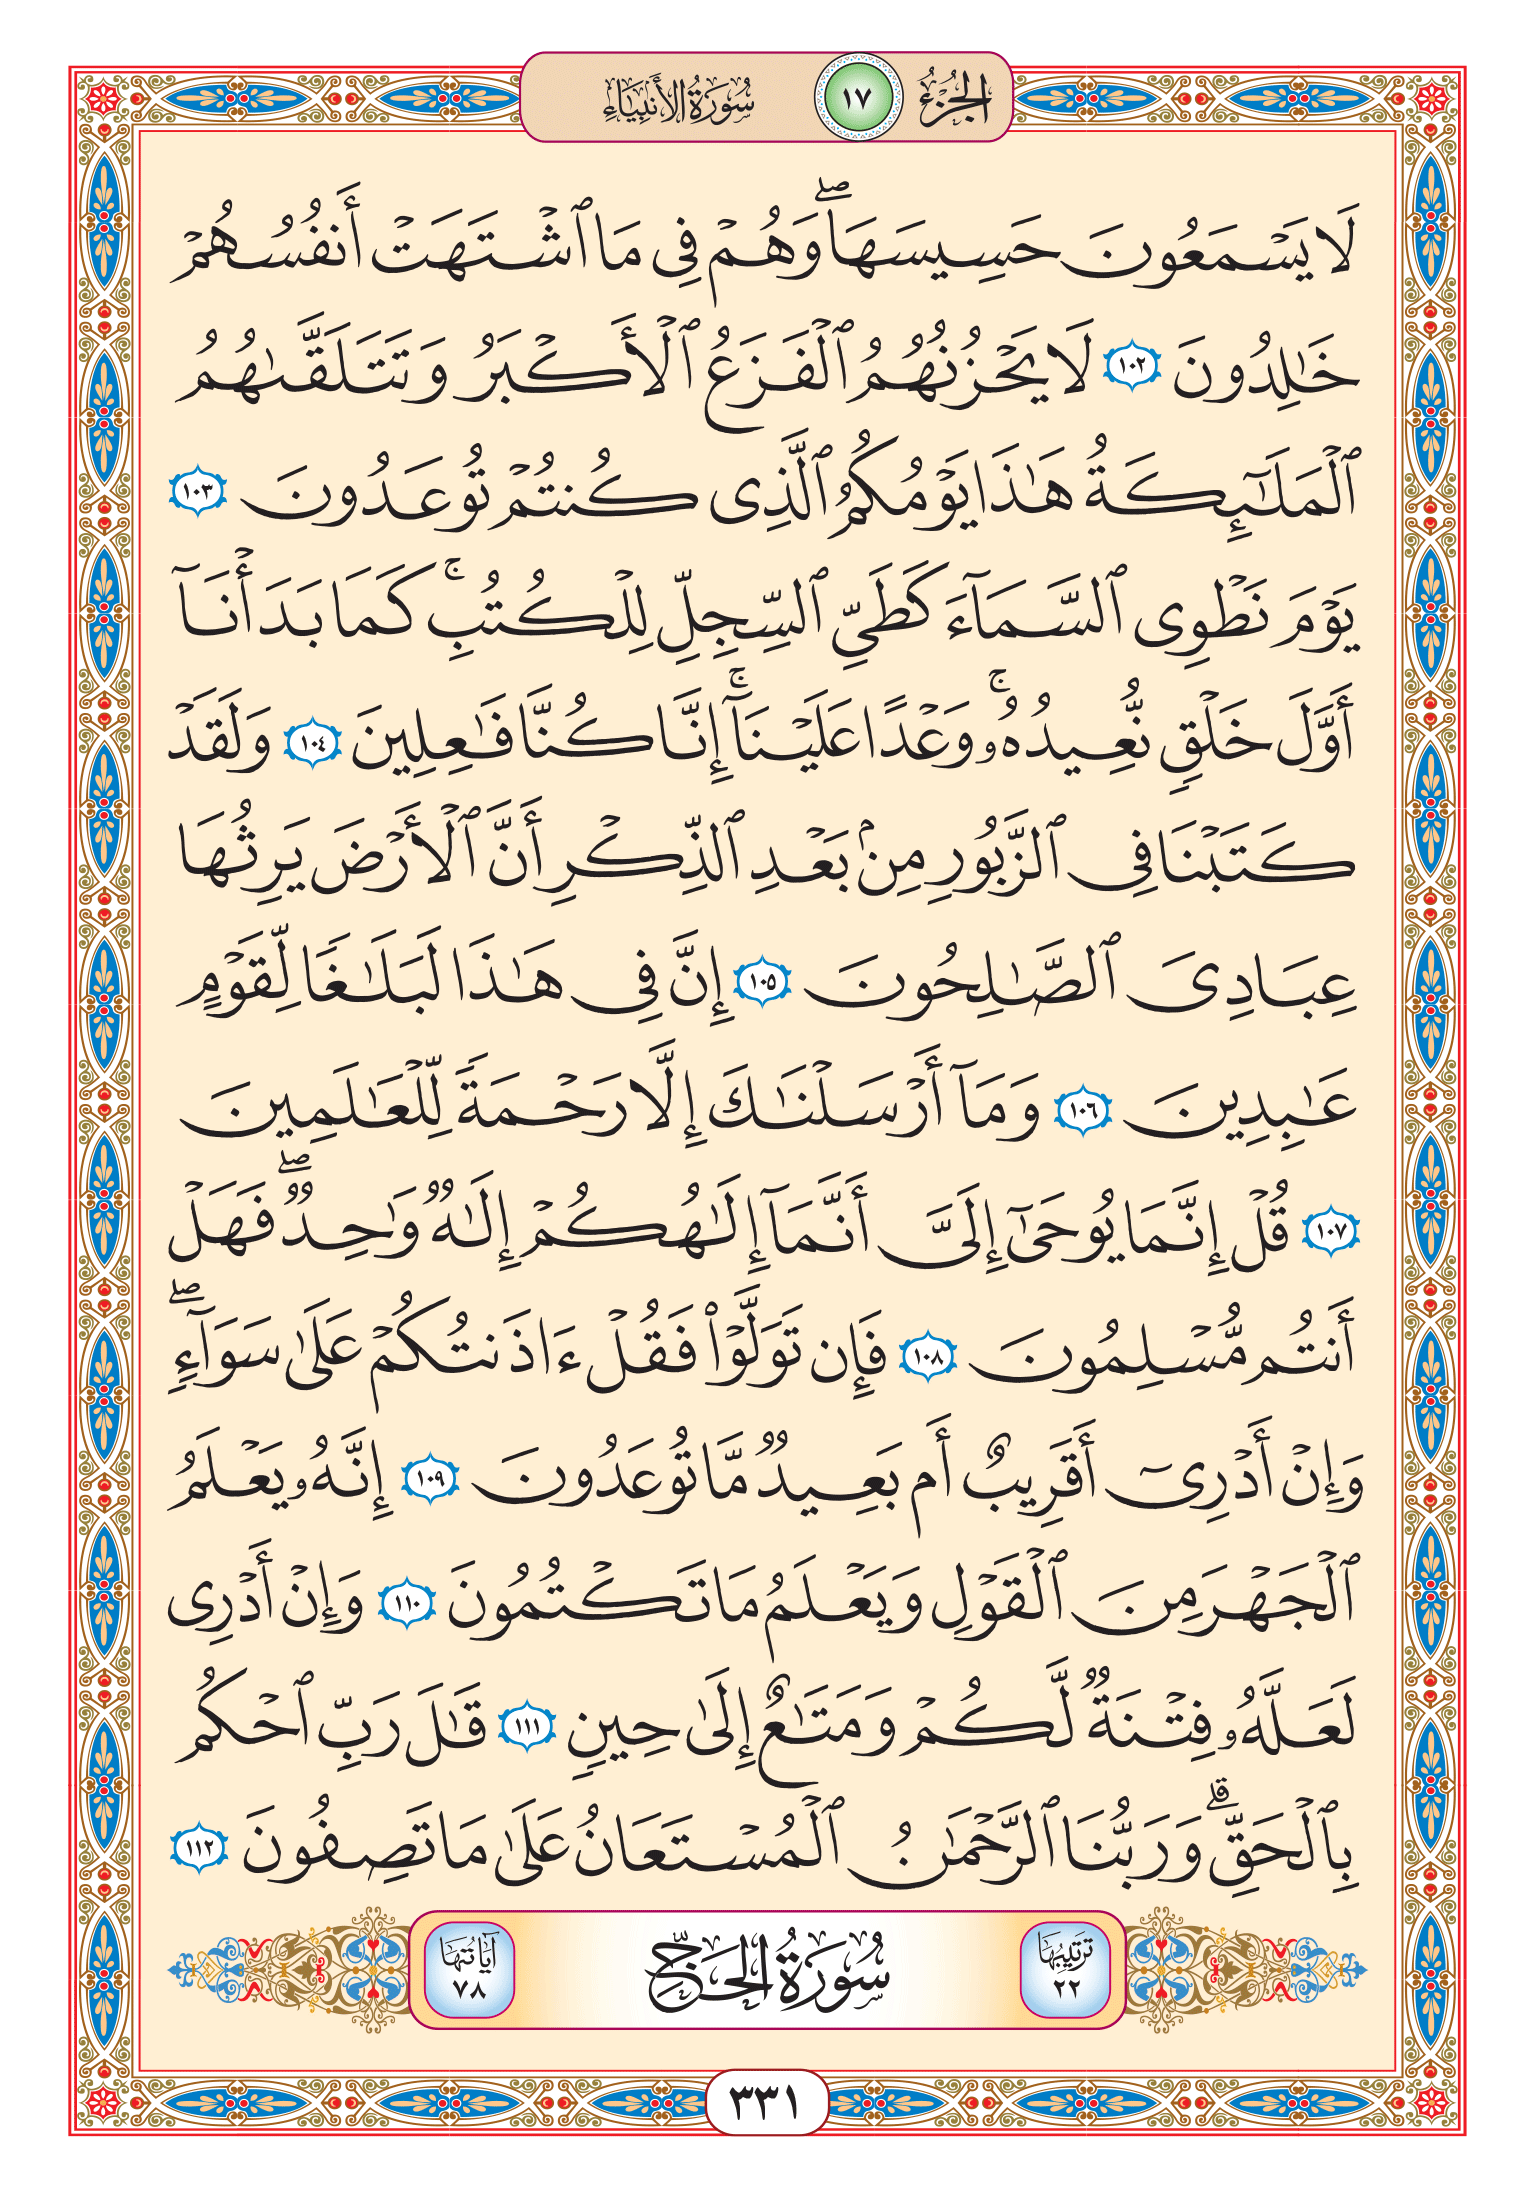 الجزء ١٧ سورة الأنبياء
لَا يَسْمَعُونَ حَسِيسَهَا ۖ وَهُمْ فِى مَا ٱشْتَهَتْ أَنفُسُهُمْ
خَـٰلِدُونَ ١٠٢ لَا يَحْزُنُهُمُ ٱلْفَزَعُ ٱلْأَكْبَرُ وَتَتَلَقَّىٰهُمُ
ٱلْمَلَـٰٓئِكَةُ هَـٰذَا يَوْمُكُمُ ٱلَّذِى كُنتُمْ تُوعَدُونَ ١٠٣
يَوْمَ نَطْوِى ٱلسَّمَآءَ كَطَىِّ ٱلسِّجِلِّ لِلْكُتُبِ ۚ كَمَا بَدَأْنَآ
أَوَّلَ خَلْقٍ نُّعِيدُهُۥ ۚ وَعْدًا عَلَيْنَآ ۚ إِنَّا كُنَّا فَـٰعِلِينَ ١٠٤ وَلَقَدْ
كَتَبْنَا فِى ٱلزَّبُورِ مِنۢ بَعْدِ ٱلذِّكْرِ أَنَّ ٱلْأَرْضَ يَرِثُهَا
عِبَادِىَ ٱلصَّـٰلِحُونَ ١٠٥ إِنَّ فِى هَـٰذَا لَبَلَـٰغًا لِّقَوْمٍ
عَـٰبِدِينَ ١٠٦ وَمَآ أَرْسَلْنَـٰكَ إِلَّا رَحْمَةً لِّلْعَـٰلَمِينَ
١٠٧ قُلْ إِنَّمَا يُوحَىٰٓ إِلَىَّ أَنَّمَآ إِلَـٰهُكُمْ إِلَـٰهٌ وَٰحِدٌ ۖ فَهَلْ
أَنتُم مُّسْلِمُونَ ١٠٨ فَإِن تَوَلَّوْا۟ فَقُلْ ءَاذَنتُكُمْ عَلَىٰ سَوَآءٍ ۖ
وَإِنْ أَدْرِىٓ أَقَرِيبٌ أَم بَعِيدٌ مَّا تُوعَدُونَ ١٠٩ إِنَّهُۥ يَعْلَمُ
ٱلْجَهْرَ مِنَ ٱلْقَوْلِ وَيَعْلَمُ مَا تَكْتُمُونَ ١١٠ وَإِنْ أَدْرِى
لَعَلَّهُۥ فِتْنَةٌ لَّكُمْ وَمَتَـٰعٌ إِلَىٰ حِينٍ ١١١ قَـٰلَ رَبِّ ٱحْكُم
بِٱلْحَقِّ ۗ وَرَبُّنَا ٱلرَّحْمَـٰنُ ٱلْمُسْتَعَانُ عَلَىٰ مَا تَصِفُونَ ١١٢
ترتيبها ٢٢ سُورَةُ الحَجِّ آياتها ٧٨
٣٣١